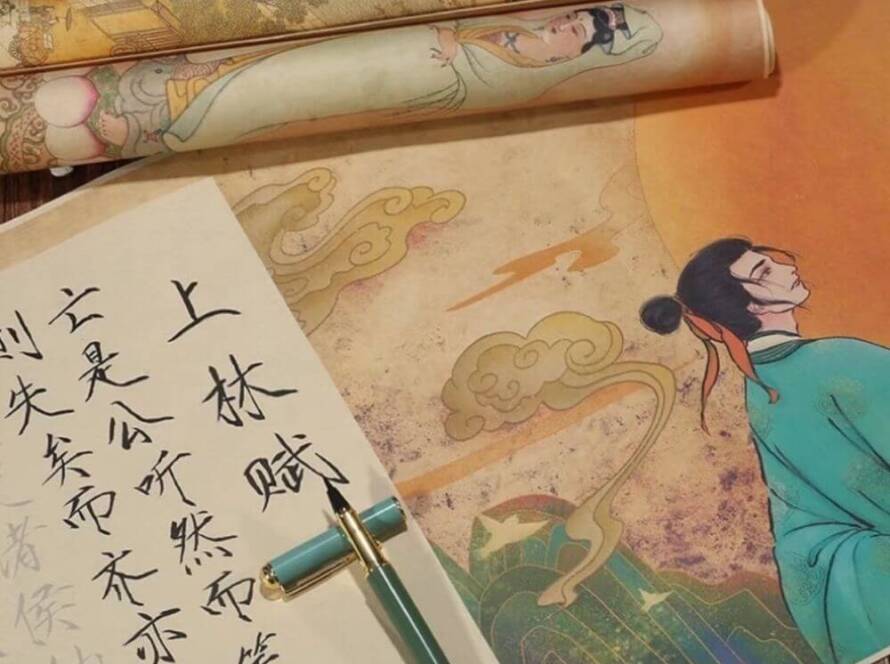 上林赋
亡是公听然而笑
则失矣而齐亦
诸侯